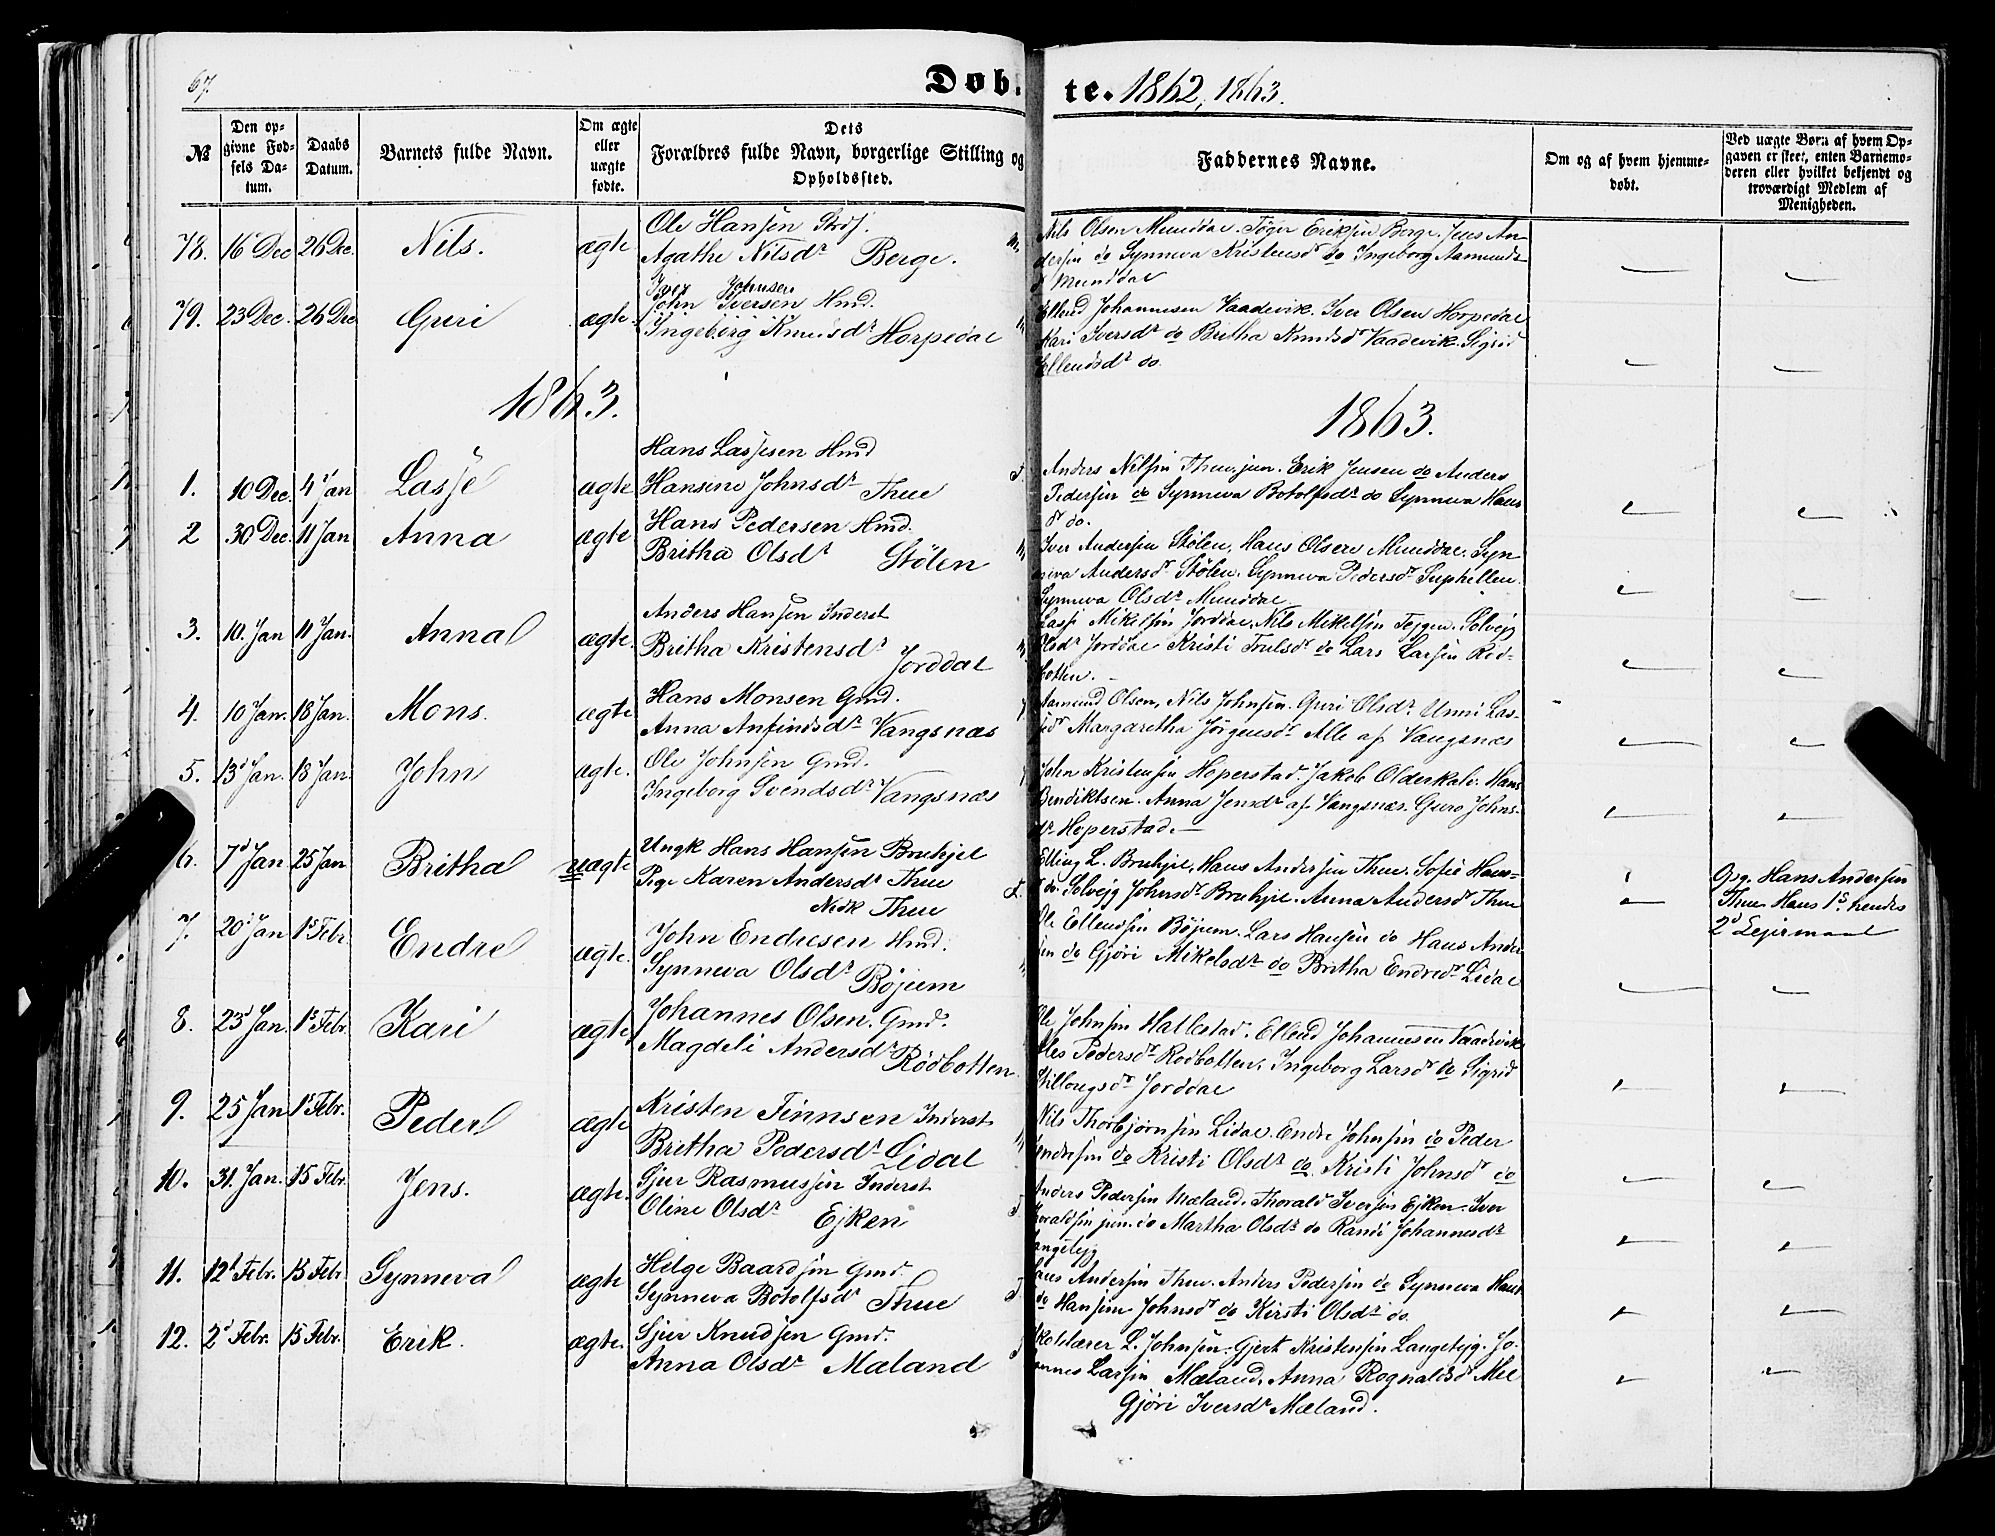 67.
Døb-
te. 1862, 1863.
№
Den op-
givne Fød-
sels Da-
tum.
Daabs
Datum.
Barnets fulde Navn.
Om ægte
eller
uægte
fødte.
Dets
Forældres fulde Navn, borgerlige Stilling og
Opholdssted.
Faddernes Navne.
Om og af hvem hjemme-
døbt.
Ved uægte Børn af hvem Op-
gaven er skeet, enten Barnemo-
deren eller hvilket bekjendt og
troværdigt Medlem af
Menigheden.
78. 16 Dec 26 Dec. Nils. ægte
Ole Hansen
Agathe Nilsdr Berge.
Nils Olsen Munddal. Tøger Eriksen Berge. Jens An-
dersen do Synneva Kristensd do Ingeborg Aamunds-
d Munddal
79. 23 Dec. 26 Dec Guri ægte.
Iver Johnsen
John Iversen Hmd.
Ingeborg Knudsdr Horpedal
Ellend Johannesen Vaadevik. Iver Olsen Horpedal
Kari Iversdr do Britha Knudsd Vaadevik. Sigrid
Ellendsdr do.
1863.
1863.
1. 10 Dec. 4d Jan Lasse ægte
Hans Lassesen Hmd
Hansine Johnsdr Thue
Anders Nilsen Thue jun. Erik Jensen do Anders
Pedersen do Synneva Botolfsdr do Synneva Hans
dr do.
2 30 Dec. 11 Jan Anna ægte
Hans Pedersen Hmd.
Britha Olsdr Stølen
Iver Andersen Stølen. Hans Olsen Munddal. Syn
neva Andersdr Stølen. Synneva Pedersdr Suphellen.
Synneva Olsdr Munddal
3. 10. Jan 11 Jan. Anna ægte.
Anders Hansen Inderst
Britha Kristensdr Jorddal
Lasse Mikelsen Jorddal. Nils Mikelsen Tejgen. Solvejg
Olsdr Jorddal Kristi Trulsdr do Lars Larsen Rød-
botten.
4. 10 Jan. 18 Jan. Mons. ægte
Hans Monsen Gmd.
Anna Anfindsdr Vangsnæs
Aamund Olsen, Nils Johnsen. Guri Olsdr. Unni Las-
sedr Margaretha Jørgensdr Alle af Vangsnæs
5. 13d Jan. 18 Jan. John ægte.
Ole Johnsen Gmd.
Ingeborg Svendsdr Vangsnæs
John Kristensen Hoperstad. Jakob Olderkale. Hans
Bendiktsen. Anna Jensdr af Vangsnæs. Guro Johns-
dr Hoperstad.
6. 7d Jan 25 Jan Britha uægte
Ungk Hans Hansen Bruhjel
Pige Karen Andersdr Thue
Nedk Thue
Elling L. Bruhjel. Hans Andersen Thue. Sofie Hans-
d do. Solvejg Johnsdr Bruhjel. Anna Andersd Thue
Hans Andersen
Thue Hans 1s, hendes
2d Lejermaal
7. 20d Jan 1s Febr. Endre ægte.
John Endresen Hmd.
Synneva Olsdr Bøjum
Ole Ellendsen Bøjum. Lars Hansen do Hans Ander-
sen do Gjøri Mikelsdr do Britha Endredr Lidal
8. 23d Jan. 1s Febr. Kari ægte
Johannes Olsen. Gmd.
Magdeli Andersdr Rødbotten
Ole Johnsen Hallestad. Ellend Johannesen Vaadevik
Pedersdr Rødbotten. Ingeborg Larsdr do Sigrid
Jorddal
9. 25 Jan 1s Febr. Peder ægte
Kristen Finnsen Inderst
Britha Pedersdr Lidal
Nils Thorbjørnsen Lidal. Endre Johnsen do Peder
Endresen do Kristi Olsdr do. Kristi Johnsdr do
10. 31. Jan. 15 Febr. Jens. ægte.
Sjur Rasmussen Inderst
Oline Olsdr Ejken
Anders Pedersen Mæland. Thorald Iversen Ejken. Iver
Thoraldsen jun. do Martha Olsdr do Randi Johannesdr
Langetejg
11. 12t Febr. 15 Febr. Synneva ægte
Helge Baardsen Gmd.
Synneva Botolfsd Thue
Hans Andersen Thue. Anders Pedersen do Synneva Hansd
do Hansine Johnsdr do Kirsti Olsdr do.
12. 2d Febr. 15 Febr. Erik. ægte.
Sjur Knudsen Gmd.
Anna Olsdr Mæland
Skolelærer L. Johnsen. Gjert Kristensen Langetejg. Jo-
hannes Larsen Mæland. Anna Rognaldsd Mel
Gjøri Iversdr Mæland.